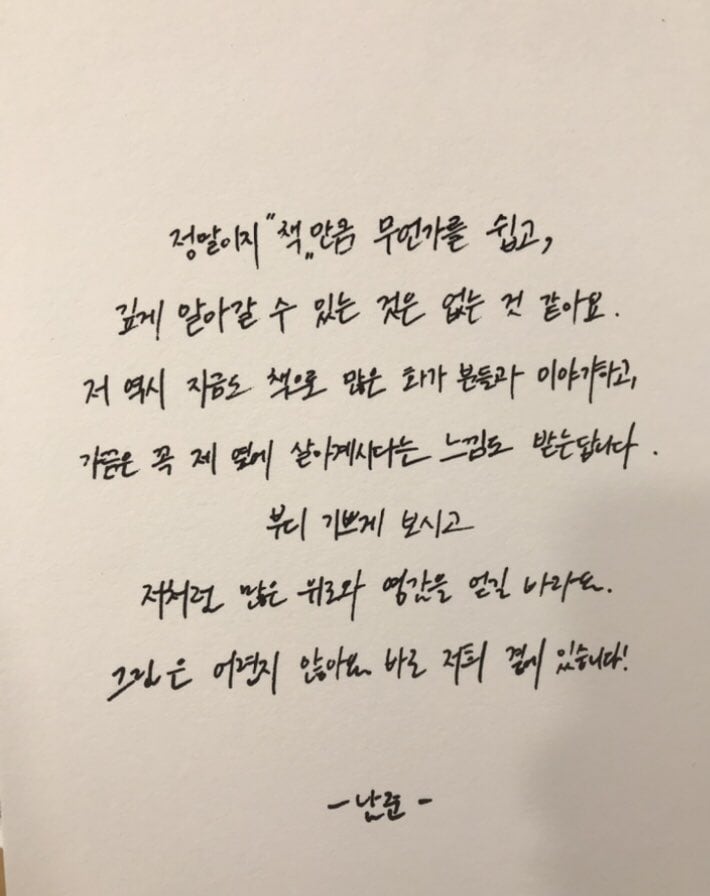 정말이지 "책„만큼 무언가를 쉽고,
깊게 알아갈 수 있는 것은 없는 것 같아요.
저 역시 지금도 책으로 많은 화가 분들과 이야기하고,
가끔은 꼭 제 옆에 살아계시다는 느낌도 받는답니다.
부디 기쁘게 보시고
저처럼 많은 위로와 영감을 얻길 바라요.
그림은 어렵지 않아요. 바로 저희 곁에 있습니다!
- 남준 -